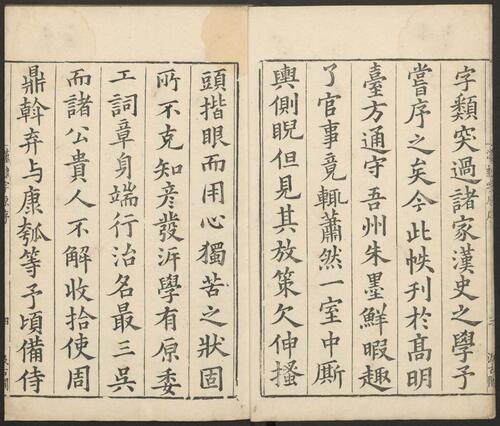 字類突過諸家漢史之學予
嘗序之矣今此帙刊於髙明
臺方通守吾州朱墨鮮暇趣
了官事竟輒蕭然一室中厮
輿側睨但見其放策欠伸搔
頭揩眼而用心獨苦之狀固
所不克知彦發㳂學有原委
工詞章身端行治名最三吳
而諸公貴人不解收拾使周
鼎斡弃与康瓠等予頃備侍